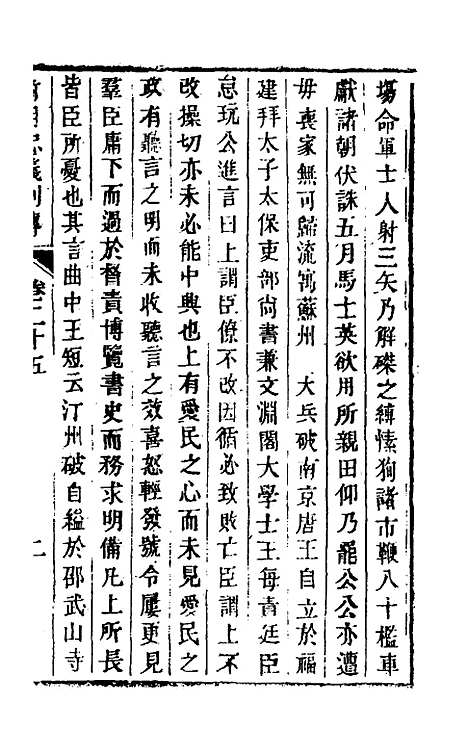 場命軍士人射三矢乃解磔之縛愫狗諸市鞭八十檻車
獻諸朝伏誅五月馬士英欲用所親田仰乃罷公公亦遭
毋喪家無可歸流寓蘇州　大兵破南京唐王自立於福
建拜太子太保吏部尚書兼文淵閣大學士王每責廷臣
怠玩公進言曰上謂臣僚不改因循必致敗亡臣謂上不
改操切亦未必能中興也上有愛民之心而未見愛民之
政有聽言之明而未收聽言之效喜怒輕發號令屢更見
羣臣庸下而過於督責博覽書史而務求明備凡上所長
皆臣所憂也其言曲中王短云汀州破自縊於邵武山寺
忠義列傳
卷二十五
二